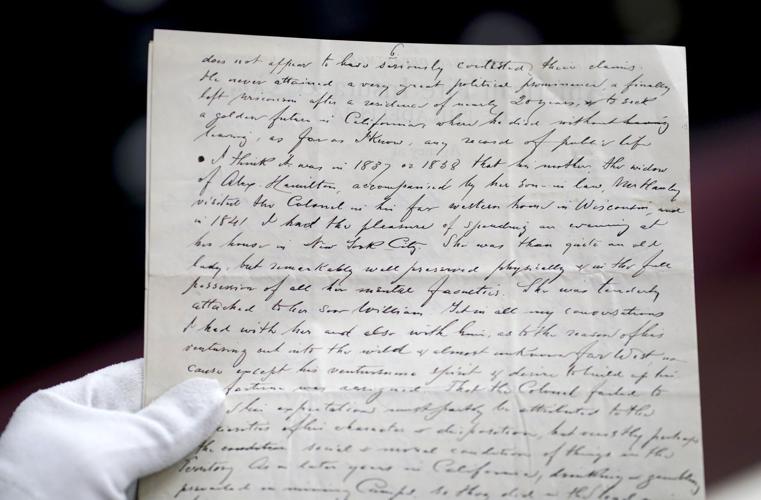 6
does not appear to have seriously contested these claims.
He never attained a very great political prominence & finally
left Wisconsin after a residence of nearly 20 years, & to seek
a golden future in California, where he died without having
leaving, as far as I know, any record of public life
I think it was in 1837 or 1838 that his mother, the widow
of Alex. Hamilton, accompanied by her son-in law, Mr
visited the Colonel in his far western home in Wisconsin, and
in 1841 I had the pleasure of spending an evening at
her house in New York City. She was than quite an old
lady, but remarkably well preserved physically & in the full
possession of all her mental faculties. She was tenderly
attached to her son William. Yet in all my conversations
I had with her and also with him, as to the reason of his
venturing out into the wild & almost unknown far West no
cause except his venturesome spirit & desire to build up his
fortune was assigned. That the Colonel failed to
his expectation must partly be attributed to the
of his character & disposition, but mostly perhaps
the condition social & moral condition of things in the
Territory. As in later years in California, drinking & gambling
prevailed in mining Camps, so they did in the